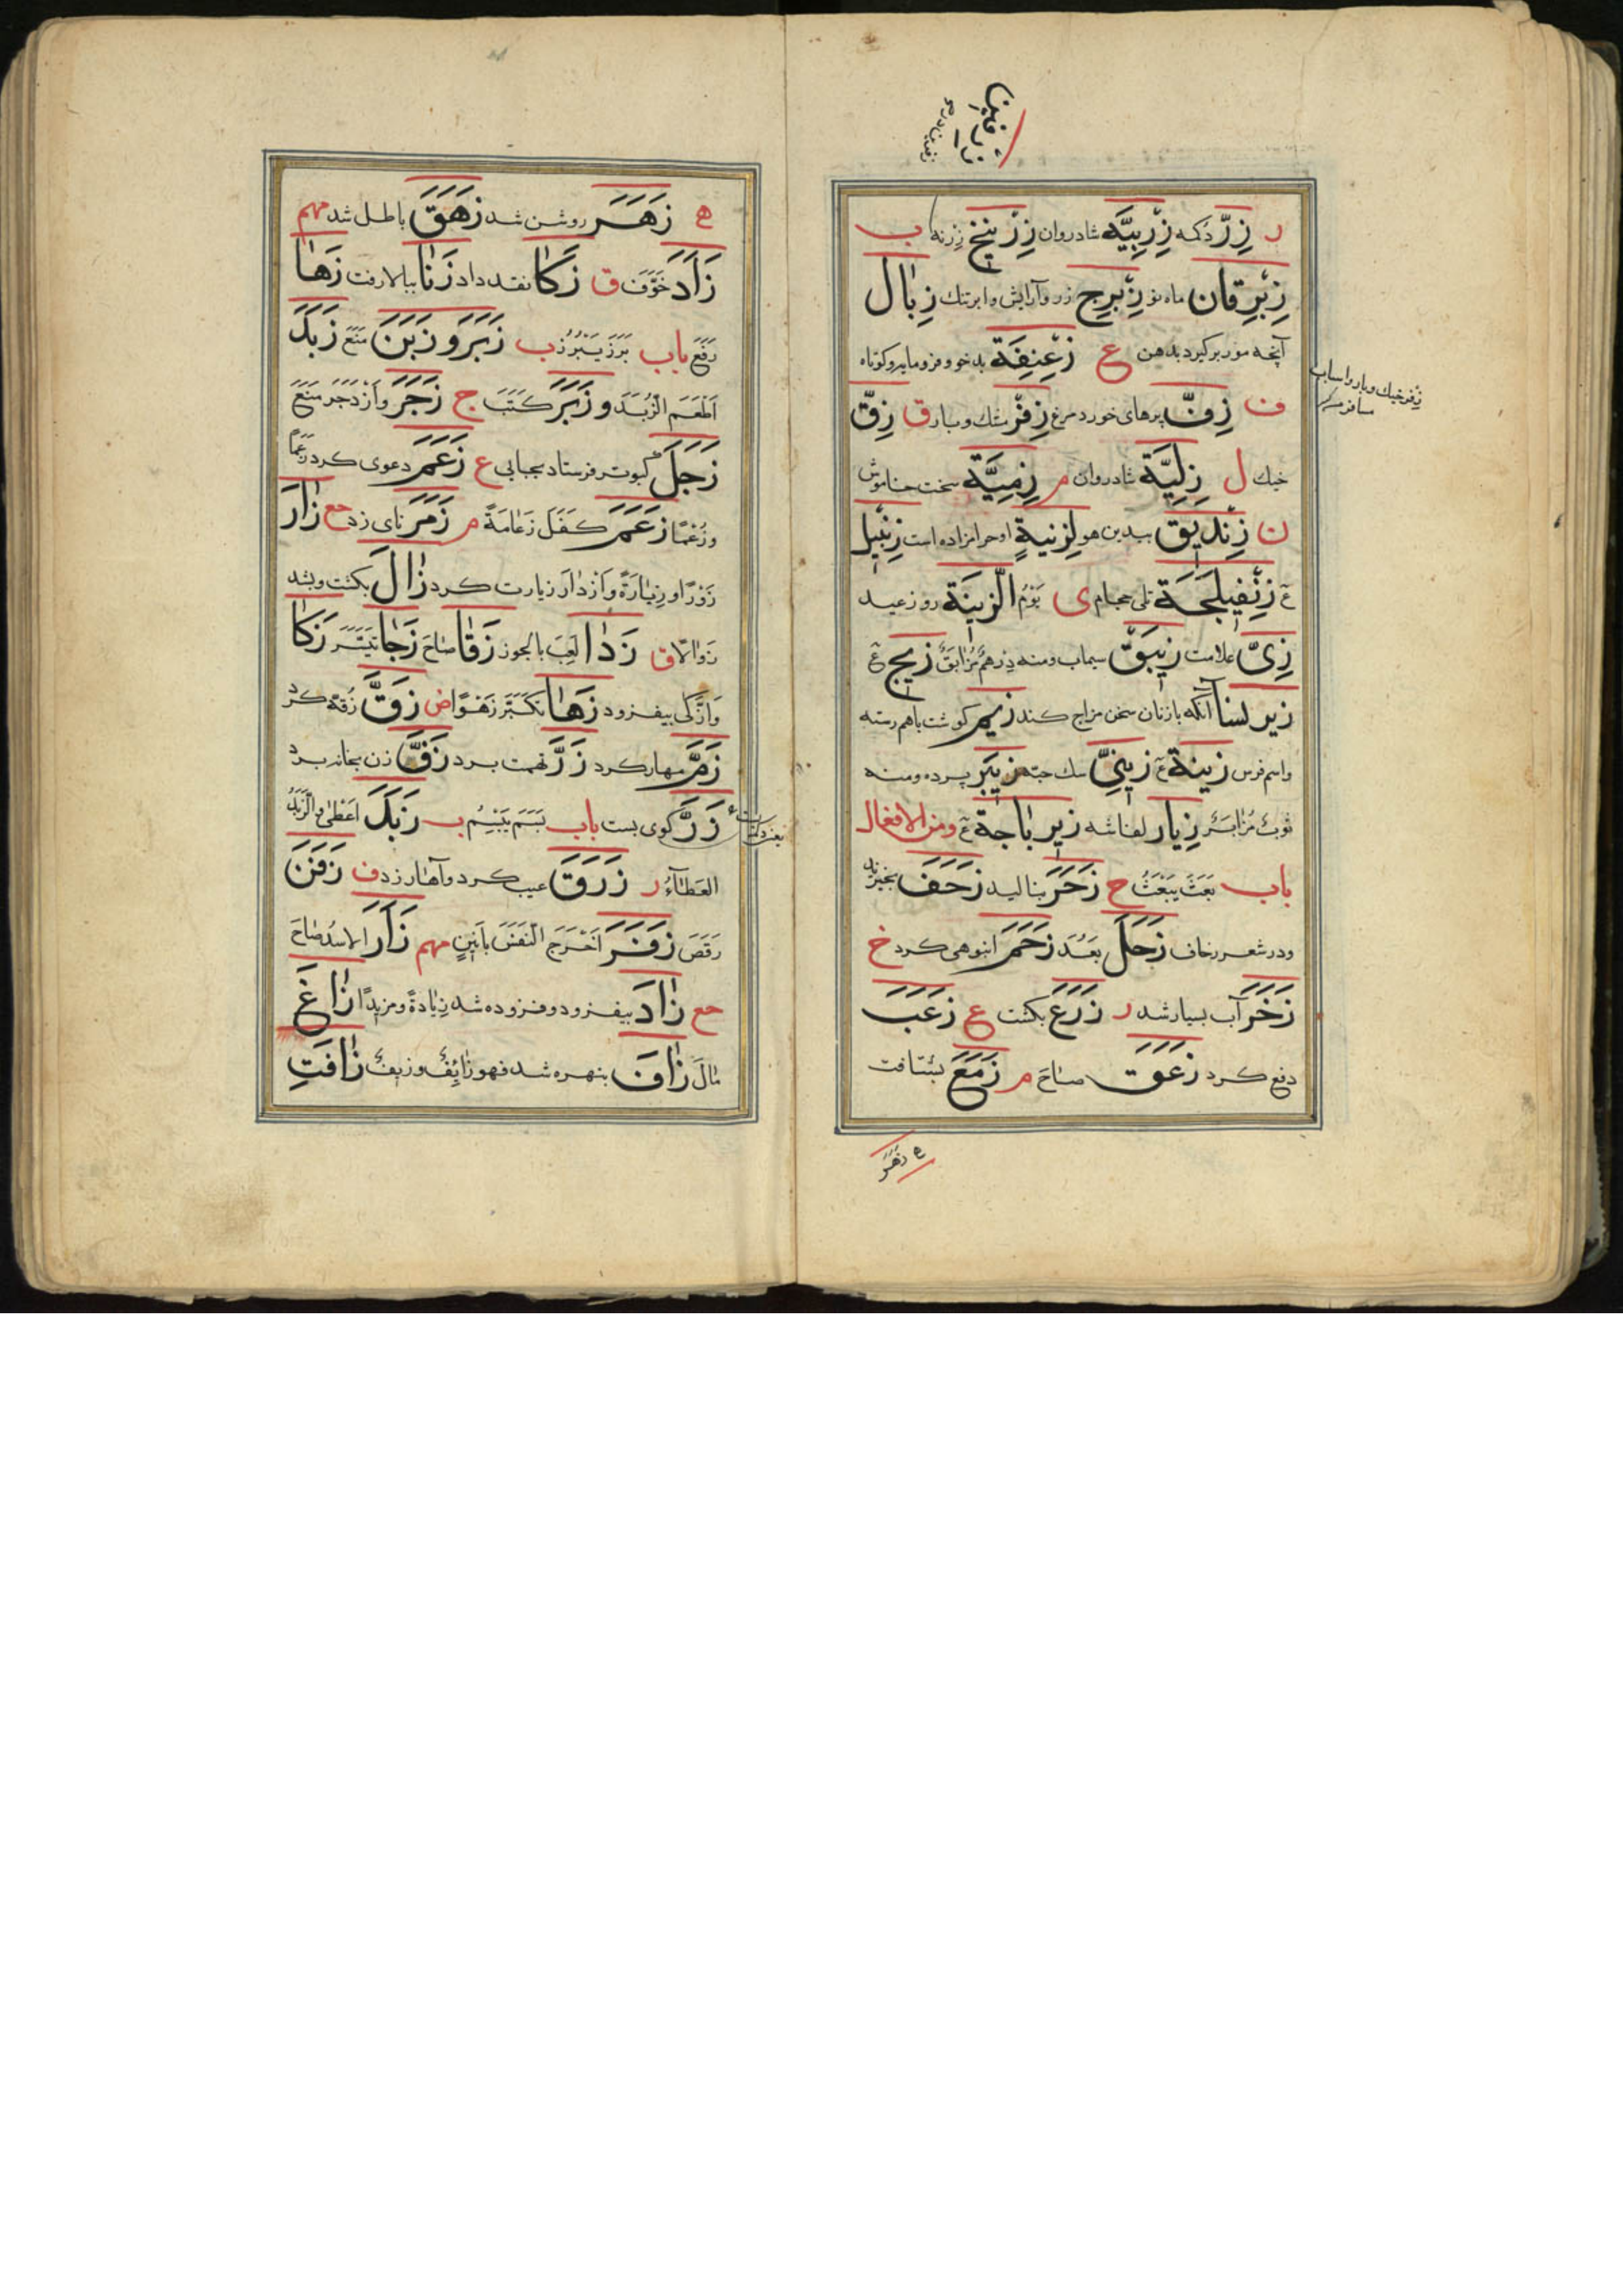 ر زِرّ دُكمه زِرْبِيَّة شادروان زِرْنيخ زرنه ب
زِبْرِقان ماه نو زِبْرِج زر وآرایش وابر تنك زِبٰال
آنچه مور بركيرد بدهن ع زَعْنِفَة بد خو وفرومايه وكوتاه
ف زِفّ پرهاى خورد مرغ زِفْر مشك وبار ق زِقّ
خيك ل زِلِيَّة شادروان م زِمِيَّة سخت خاموش
ن زِنْدِيق بيدين هو لِزِنيةٍ او حرامزاده است زِنْبيل
عَ زِنْفِيلَجَة تلى حجام ى يَوْمُ الزّينَة روز عيد
زِىّ علامت زِيبَقْ سيماب ومنه دِرهَمٌ مُزَابَقٌ زيج عَ
زير لسنا آنكه بازنان سخن مزاج كند زيم كوشت باهم رسته
واسم فرس زينة عَ زينِىّ سك جته زِيبَر پرده ومنه
ثوبٌ مُزَابَر زِيار لفاشه زيربٰاجة عَ ومن الافعال
باب بَعَثَ يَبْعَثُ ح زَحَرَ بناليد زَحَفَ بخيزيد
ودر شعر زحاف زَحَلَ بَعُدَ زَحَمَ انبوهى كرد خ
زَخَرَ آب بسيار شد ر زَرَعَ بكشت ع زَعَبَ
دفع كرد زَعَقَ صٰاحَ م زَمَعَ بشتافت
ه زَهَرَ
زفر خيك وبار واسباب
مسافر
ه زَهَرَ روشن شد زَهَقَ باطل شد مهم
زَأَدَ خَوَّفَ ق زَكَا نقد داد زَنَا ببالا رفت زَهَا
رَفَعَ باب بَرَزَ يَبْرُزُ ب زَبَرَ و زَبَنَ مَنَعَ زَبَدَ
اَطْعَمَ الزُّبَدَ و زَبَرَ كَتَبَ ج زَجَرَ وَازْدَجَرَ مَنَعَ
زَجَلَ كبوتر فرستاد بجبابى ع زَعَمَ دعوى كرد زَعْمًا
وزُعْمًا زَعَمَ كَفَلَ زَعٰامَةً م زَمَرَ ناى زد جع زٰارَ
زَوْرًا وزِيٰارَةً وَازْدٰارَ زيارت كرد زٰالَ بكشت وبشد
زَوٰالًا ق زَدٰا لَعِبَ بالجوز زَقٰا صٰاحَ زَجٰا تَيَسَّرَ زَكَا
وَازَّكى بيفزود زَهٰا تكَبَّرَ زَهْوًا ض زَقَّ زُقّه كرد
زَمَّ مهار كرد زَنَّ تهمت برد زَفَّ زن بخانه برد
زَرَّ كوى بست باب بَسَمَ يَبْسِمُ ب زَبَدَ اَعْطٰى والزَّبَدُ
العَطٰاءُ ر زَرَقَ عيب كرد وآهار زد ف زَفَنَ
رَقَصَ زَفَرَ اَخْرَجَ النَّفَسَ بأنينٍ مهم زَأَرَ الاسَدُ صٰاحَ
جع زٰادَ بيفزود وفزوده شد زِيٰادةً ومزيدًا زٰاغَ
مٰالَ زٰافَ بنهره شد فهو زٰائِفٌ وزيفٌ زٰافَتِ